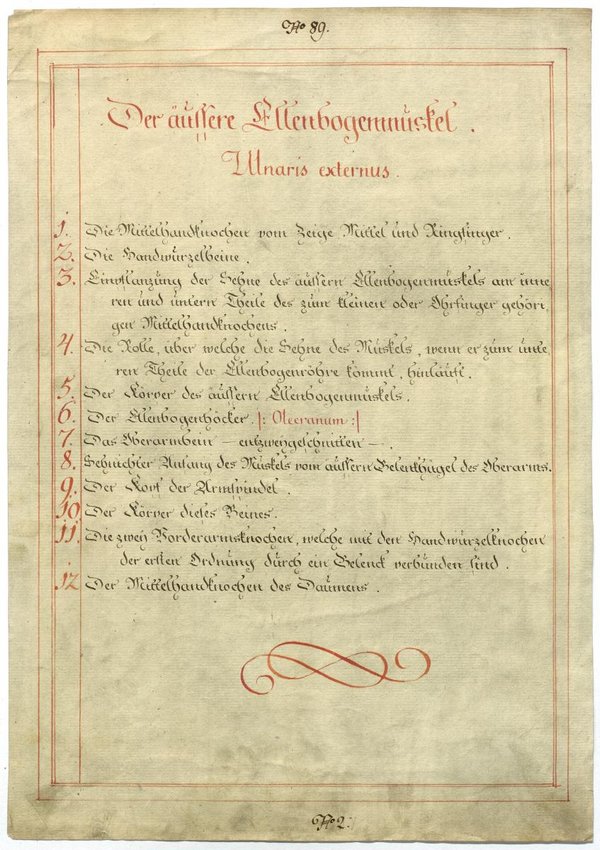 No 89.
Der äussere Ellenbogenmuskel.
Ulnaris externus.
1. Die Mittelhandknochen vom Zeige Mittel und Ringfinger.
2. Die Handwurzelbeine.
3. Einpflanzung der Sehne des äussern Ellenbogenmuskels am inne
ren und untern Theile des zum kleinen oder Ohrfinger gehöri,
gen Mittelhandknochens.
4. Die Rolle, über welche die Sehne des Muskels, wenn er zum unte
ren Theile der Ellenbogenröhre kommt, hinläuft.
5. Der Körper des äussern Ellenbogenmuskels.
6. Der Ellenbogenhöcker. |: Olecranum :|
7. Das Oberarmbein — entzweygeschnitten —.
8. Sehnichter Anfang des Muskels vom äussern Gelenkhügel des Oberarms.
9. Der Kopf der Armspindel.
10. Der Körper dieses Beines.
11. Die zwey Vorderarmsknochen, welche mit den Handwurzelknochen
der ersten Ordnung durch ein Gelenk verbunden sind.
12 Der Mittelhandknochen des Daumens.
No 2.